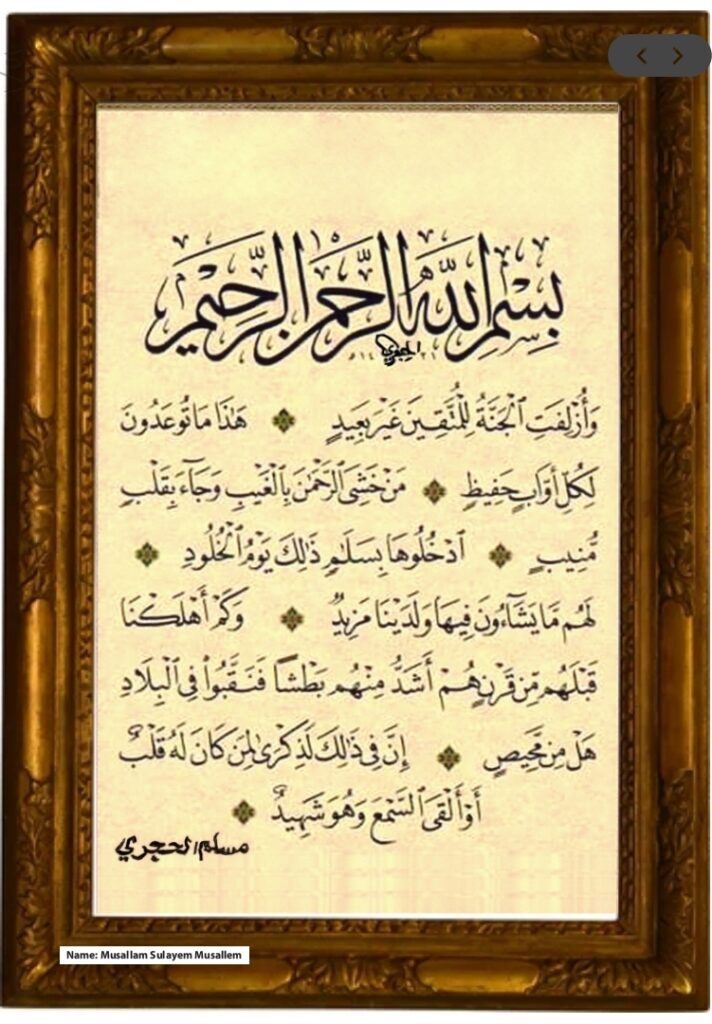 بِسْمِ اللَّهِ الرَّحْمَنِ الرَّحِيمِ
الحجري
وَأُزْلِفَتِ ٱلْجَنَّةُ لِلْمُتَّقِينَ غَيْرَ بَعِيدٍ ۞ هَٰذَا مَا تُوعَدُونَ
لِكُلِّ أَوَّابٍ حَفِيظٍ ۞ مَنْ خَشِىَ ٱلرَّحْمَٰنَ بِٱلْغَيْبِ وَجَآءَ بِقَلْبٍ
مُّنِيبٍ ۞ ٱدْخُلُوهَا بِسَلَٰمٍ ذَٰلِكَ يَوْمُ ٱلْخُلُودِ ۞
لَهُم مَّا يَشَآءُونَ فِيهَا وَلَدَيْنَا مَزِيدٌ ۞ وَكَمْ أَهْلَكْنَا
قَبْلَهُم مِّن قَرْنٍ هُمْ أَشَدُّ مِنْهُم بَطْشًا فَنَقَّبُوا۟ فِى ٱلْبِلَادِ
هَلْ مِن مَّحِيصٍ ۞ إِنَّ فِى ذَٰلِكَ لَذِكْرَىٰ لِمَن كَانَ لَهُۥ قَلْبٌ
أَوْ أَلْقَى ٱلسَّمْعَ وَهُوَ شَهِيدٌ ۞
مسلم الحجري
Name: Musallam Sulayem Musallem